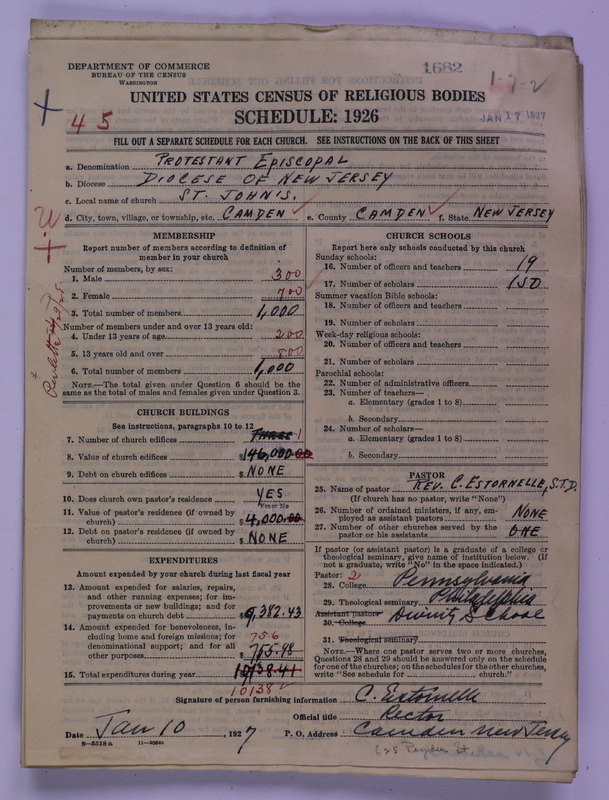 DEPARTMENT OF COMMERCE
BUREAU OF THE CENSUS
WASHINGTON
1682
1-7-2
UNITED STATES CENSUS OF RELIGIOUS BODIES
SCHEDULE: 1926
JAN 17 1927
45
FILL OUT A SEPARATE SCHEDULE FOR EACH CHURCH. SEE INSTRUCTIONS ON THE BACK OF THIS SHEET
a. Denomination PROTESTANT EPISCOPAL
b. Diocese DIOCESE OF NEW JERSEY
c. Local name of church ST. JOHN'S.
d. City, town, village, or township, etc. CAMDEN e. County CAMDEN f. State NEW JERSEY
MEMBERSHIP
Report number of members according to definition of
member in your church
Number of members, by sex:
1. Male 300
2. Female 700
3. Total number of members 1,000
Number of members under and over 13 years old:
4. Under 13 years of age 200
5. 13 years old and over 800
6. Total number of members 1,000
NOTE.—The total given under Question 6 should be the
same as the total of males and females given under Question 3.
CHURCH BUILDINGS
See instructions, paragraphs 10 to 12
7. Number of church edifices THREE 1
8. Value of church edifices $146,000.00
9. Debt on church edifices $ NONE
10. Does church own pastor's residence YES
Yes or No
11. Value of pastor's residence (if owned by
church) $4,000.00
12. Debt on pastor's residence (if owned by
church) $ NONE
EXPENDITURES
Amount expended by your church during last fiscal year
13. For amount expended for salaries, repairs,
and other running expenses; for im-
provements or new buildings; and for
payments on church debt $9,382.43
14. Amount expended for benevolences, in-
cluding home and foreign missions; for
denominational support; and for all
other purposes $755.98
756
15. Total expenditures during year 10138.41
10138
CHURCH SCHOOLS
Report here only schools conducted by this church
Sunday schools:
16. Number of officers and teachers 19
17. Number of scholars 150
Summer vacation Bible schools:
18. Number of officers and teachers
19. Number of scholars
Week-day religious schools:
20. Number of officers and teachers
21. Number of scholars
Parochial schools:
22. Number of administrative officers
23. Number of teachers—
a. Elementary (grades 1 to 8)
b. Secondary
24. Number of scholars—
a. Elementary (grades 1 to 8)
b. Secondary
PASTOR
25. Name of pastor REV. C. ESTORNELLE, S.T.D.
(If church has no pastor, write "None")
26. Number of ordained ministers, if any, em-
ployed as assistant pastors NONE
27. Number of other churches served by the
pastor or his assistants ONE
If pastor (or assistant pastor) is a graduate of a college or
theological seminary, give name of institution below. (If
not a graduate, write "No" in the space indicated.)
Pastor: 2
28. College Pennsylvania
29. Theological seminary Philadelphia
Assistant pastor: Divinity School
30. College
31. Theological seminary
NOTE.—Where one pastor serves two or more churches,
Questions 28 and 29 should be answered only on the schedule
for one of the churches; on the schedules for the other churches,
write "See schedule for church."
Signature of person furnishing information C. Estornelle
Official title Rector
Date Jan 10, 1927 P. O. Address Camden New Jersey
8—5518a 11—9056c